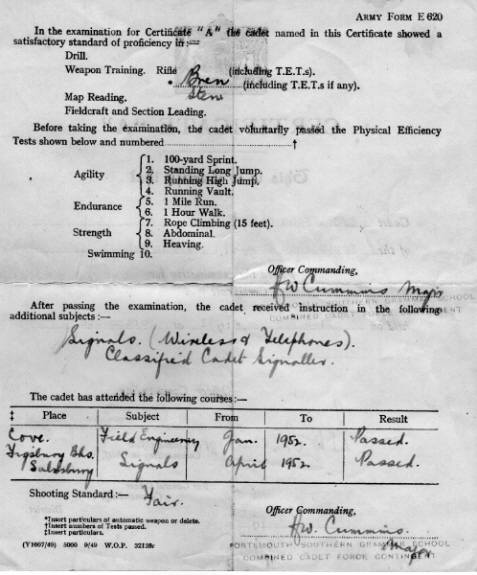 ARMY FORM E 620
In the examination for Certificate "A" the cadet named in this Certificate showed a
satisfactory standard of proficiency in :—
Drill.
Weapon Training. Rifle (including T.E.T.s).
* Bren (including T.E.T.s if any).
Sten
Map Reading.
Fieldcraft and Section Leading.
Before taking the examination, the cadet voluntarily passed the Physical Efficiency
Tests shown below and numbered †
Agility { 1. 100-yard Sprint.
2. Standing Long Jump.
3. Running High Jump.
4. Running Vault.
Endurance { 5. 1 Mile Run.
6. 1 Hour Walk.
Strength { 7. Rope Climbing (15 feet).
8. Abdominal.
9. Heaving.
Swimming 10.
Officer Commanding,
F W Cummins Major
After passing the examination, the cadet received instruction in the following
additional subjects :—
Signals. (Wireless & Telephones).
Classified Cadet Signaller.
The cadet has attended the following courses:—
‡ Place Subject From To Result
Cove. Field Engineering Jan. 1952. Passed.
Figsbury Bks.
Salisbury Signals April 1952 Passed.
Shooting Standard :— Fair.
*Insert particulars of automatic weapon or delete.
†Insert numbers of Tests passed.
‡Insert particulars.
Officer Commanding,
F.W. Cummins.
Major
PORTSMOUTH SOUTHERN GRAMMAR SCHOOL
COMBINED CADET FORCE CONTINGENT